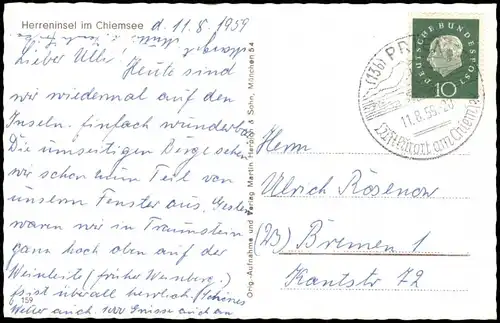 Herreninsel im Chiemsee
d. 11.8.1959
Lieber Ulli! Heute sind
wir wiedermal auf den
Inseln. Einfach wunderbar
Die umseitigen Berge sehen
wir schon zum Teil von
unserm Fenster aus. Gestern
waren wir in Traunstein
ganz hoch oben auf der
Weinleite (früher Weinberg.)
Es ist überall herrlich. (Schönes
Wetter auch. 1000 Grüsse auch an
159
Orig.-Aufnahme und Verlag Martin Herpich & Sohn, München 54
DEUTSCHE BUNDESPOST
10
(13b) PRIEN
11.8.59.-20
Luftkurort am Chiemsee
Herrn
Ulrich Rösenow
(23) Bremen 1
Kantstr 72